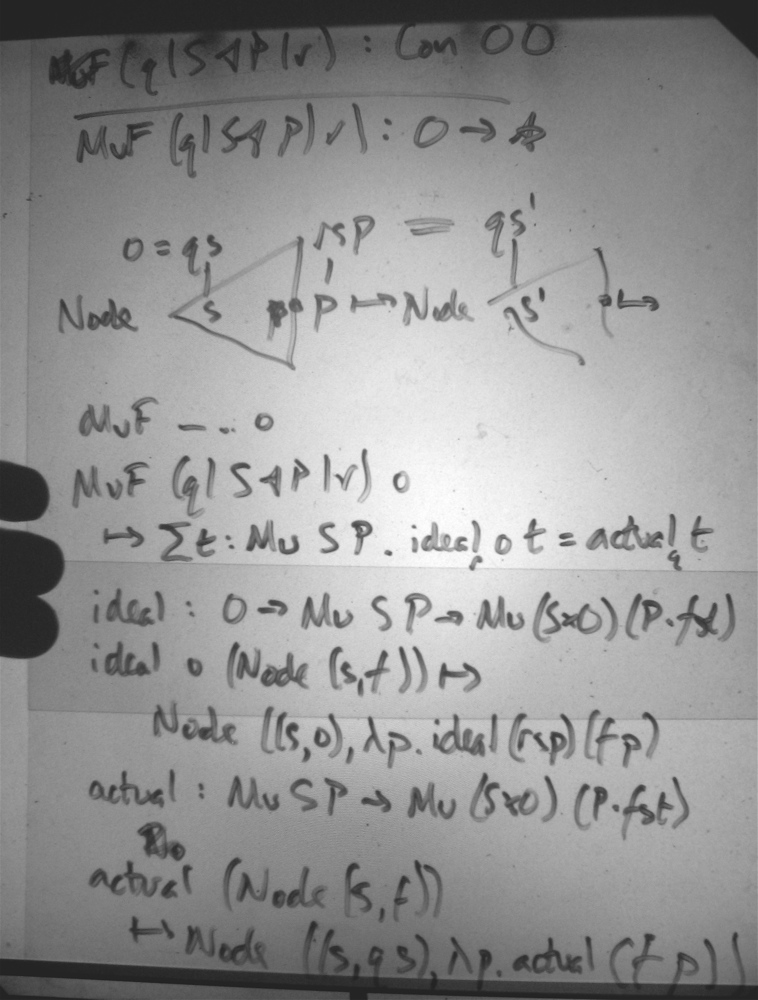 MuF (q|S ◁ P|r) : Con O O
MuF (q|S ◁ P|r) : O → ☆
O = qs rsp = qs'
Node s p ↦ Node s' ↦
MuF _ .. o
MuF (q|S ◁ P|r) o
↦ Σt : Mu S P . ideal_r o t = actual_q t
ideal : O → Mu S P → Mu (S×O) (P·fst)
ideal o (Node (s,f)) ↦
Node ((s,o), λp. ideal (rsp) (f p)
actual : Mu S P → Mu (S×O) (P·fst)
actual (Node (s,f))
↦ Node ((s,q s), λp. actual (f p))